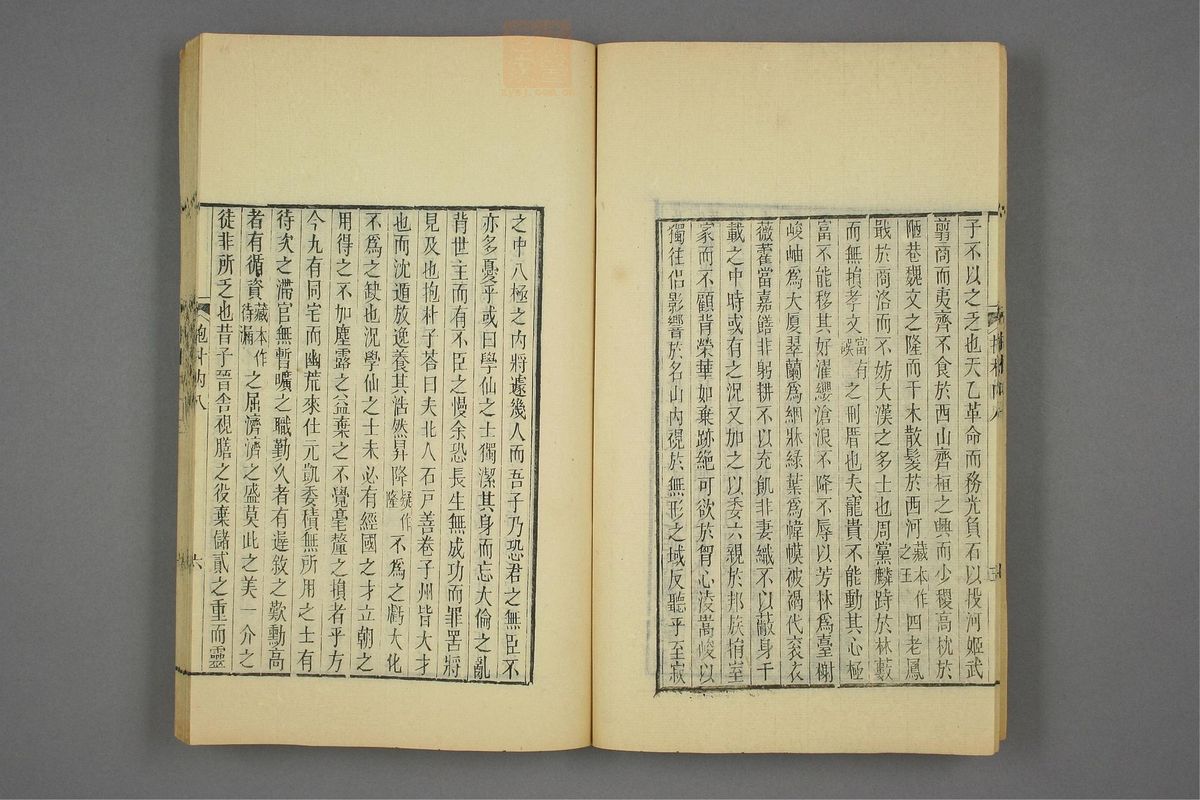 子不以之乏也天乙革命而務光負石以投河姬武
翦商而夷齊不食於西山齊桓之興而少稷高枕於
陋巷魏文之隆而干木散髮於西河藏本作之王四老鳳
戢於商洛而不妨大漢之多士也周黨麟跱於林藪
而無損孝文富有誤之刑厝也夫寵貴不能動其心極
富不能移其好濯纓滄浪不降不辱以芳林為臺榭
峻岫為大厦翠蘭為絪牀綠葉為幃幙被褐代衮衣
薇藿當嘉饍非躬耕不以充飢非妻織不以蔽身千
載之中時或有之況又加之以委六親於邦族捐室
家而不顧背榮華如棄跡絕可欲於胷心淩嵩峻以
獨往侶影響於名山內視於無形之域反聽乎至寂
之中八極之內將遽幾人而吾子乃恐君之無臣不
亦多憂乎或曰學仙之士獨潔其身而忘大倫之亂
背世主而有不臣之慢余恐長生無成功而罪罟將
見及也抱朴子荅曰夫北人石戸善卷子州皆大才
也而沈遁放逸養其浩然昇降疑作隆不為之虧大化
不為之缺也況學仙之士未必有經國之才立朝之
用得之不加塵露之益棄之不覺毫釐之損者乎方
今九有同宅而幽荒來仕元凱委積無所用之士有
待次之滯官無暫曠之職勤久者有遲敘之歎勳高
者有循資藏本作待漏之屈濟濟之盛莫此之美一介之
徒非所乏也昔子晉舍視膳之役棄儲貳之重而靈
抱朴內八
六